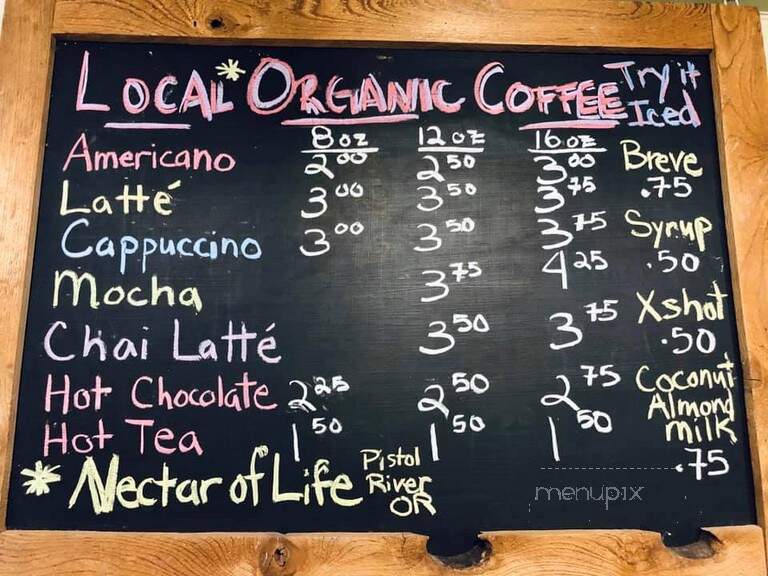 Local * Organic Coffee Try it Iced
8 oz 12 oz 16 oz
Americano 2.00 2.50 3.00 Breve .75
Latté 3.00 3.50 3.75
Cappuccino 3.00 3.50 3.75 Syrup .50
Mocha 3.75 4.25
Chai Latté 3.50 3.75 Xshot .50
Hot Chocolate 2.25 2.50 2.75 Coconut Almond milk .75
Hot Tea 1.50 1.50 1.50
* Nectar of Life Pistol River OR
menupix